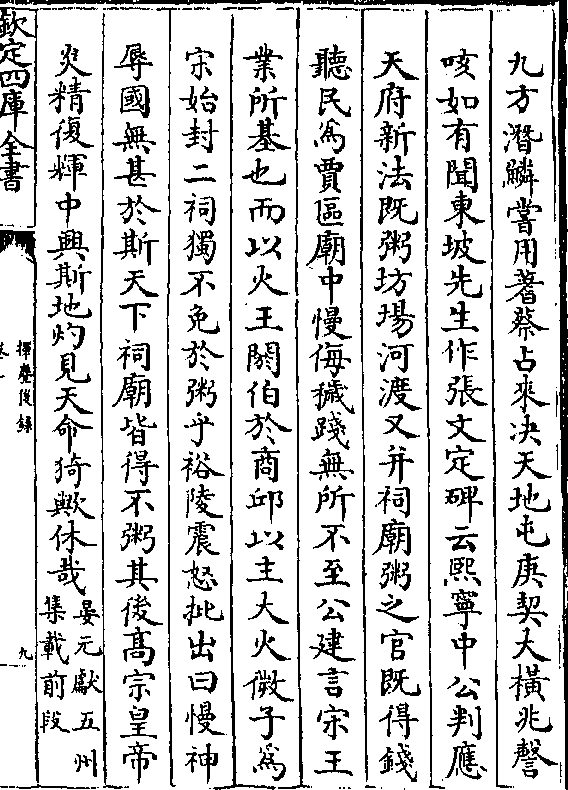 九方潛鱗嘗用蓍蔡占來決天地屯庚契大橫兆謦
咳如有聞東坡先生作張文定碑云熙寧中公判應
天府新法既粥坊場河渡又并祠廟粥之官既得錢
聽民為賈區廟中慢侮穢踐無所不至公建言宋王
業所基也而以火王閼伯於商邱以主大火微子為
宋始封二祠獨不免於粥乎裕陵震怒批出曰慢神
辱國無甚於斯天下祠廟皆得不粥其後髙宗皇帝
炎精復輝中興斯地灼見天命猗歟休哉晏元獻五州
集載前段
欽定四庫全書
揮麈後錄
卷一
九